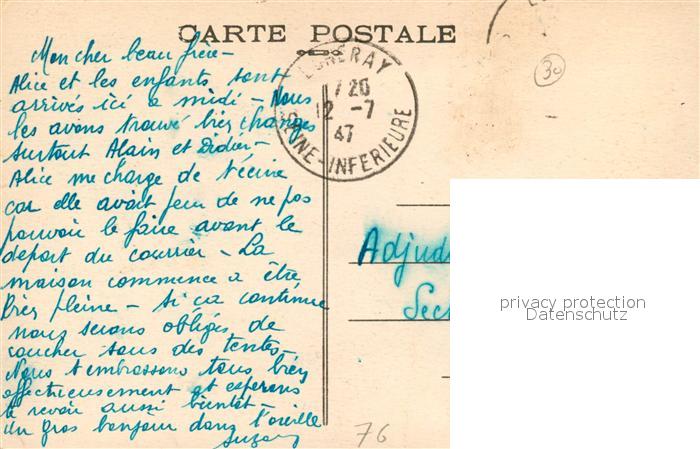 CARTE POSTALE
Mon cher beau frère -
Alice et les enfants sont
arrivés ici a midi - Nous
les avons trouvé bien changés
surtout Alain et Didier -
Alice me charge de t'écrire
car elle avait peur de ne pas
pouvoir le faire avant le
depart du courrier - La
maison commence a être
bien pleine - Si ça continue
nous serons obligés de
coucher sous des tentes -
Nous t'embrassons tous bien
affectueusement et esperons
te revoir aussi bientôt -
un gros bonjour dans l'oreille
7 20
12 -7
47
-INFERIEURE
30
Adjud
Sec
privacy protection
Datenschutz
76